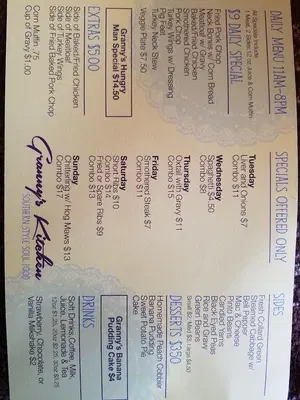 DAILY MENU 11AM-8PM
All Specials Include
1 Meat, 2 Sides, 12 oz. Juice & Corn Muffin
$9 DAILY SPECIAL
Fried Pork Chop
Neckbones w/ Corn Bread
Meatloaf w/ Gravy
Baked/Fried Chicken
Smothered Chicken
Pork Chop
Turkey Wings w/ Dressing
Pig Feet
Turkey Neck Stew
Veggie Plate $7.50
Granny's Hungry
Man Special $14.50
EXTRAS $5.00
Side of Baked/Fried Chicken
Side of Meatloaf
Side of Turkey Wings
Side of Fried Baked Pork Chop
Corn Muffin .75
Cup of Gravy $1.00
SPECIALS OFFERED ONLY
Tuesday
Liver and Onions $7
Combo $11
Wednesday
Spaghetti $4.50
Combo $8
Thursday
Oxtail with Gravy $11
Combo $15
Friday
Smothered Steak $7
Combo $11
Saturday
Short Ribs $10
Combo $14
Fried or Spare Ribs $9
Combo $13
Sunday
Chitterling w/ Hog Maws $13
Combo $13
Granny's Kitchen
SOUTHERN STYLE SOUL FOOD
SIDES
Fresh Collard Green
Steamed Cabbage w/
Bell Pepper
Mac & Cheese
Pinto Beans
Candied Yams
Black Eyed Peas
Rice and Gravy
Green Beans
Small $2 Med $3 Large $4.50
DESSERTS $3.50
Homemade Peach Cobbler
Banana Pudding
Sweet Potato Pie
Cake
Granny's Banana
Pudding Cake $4
DRINKS
Soft Drinks, Coffee, Milk,
Juice, Lemonade & Tea
Strawberry, Chocolate, or
Vanilla Milkshake $2